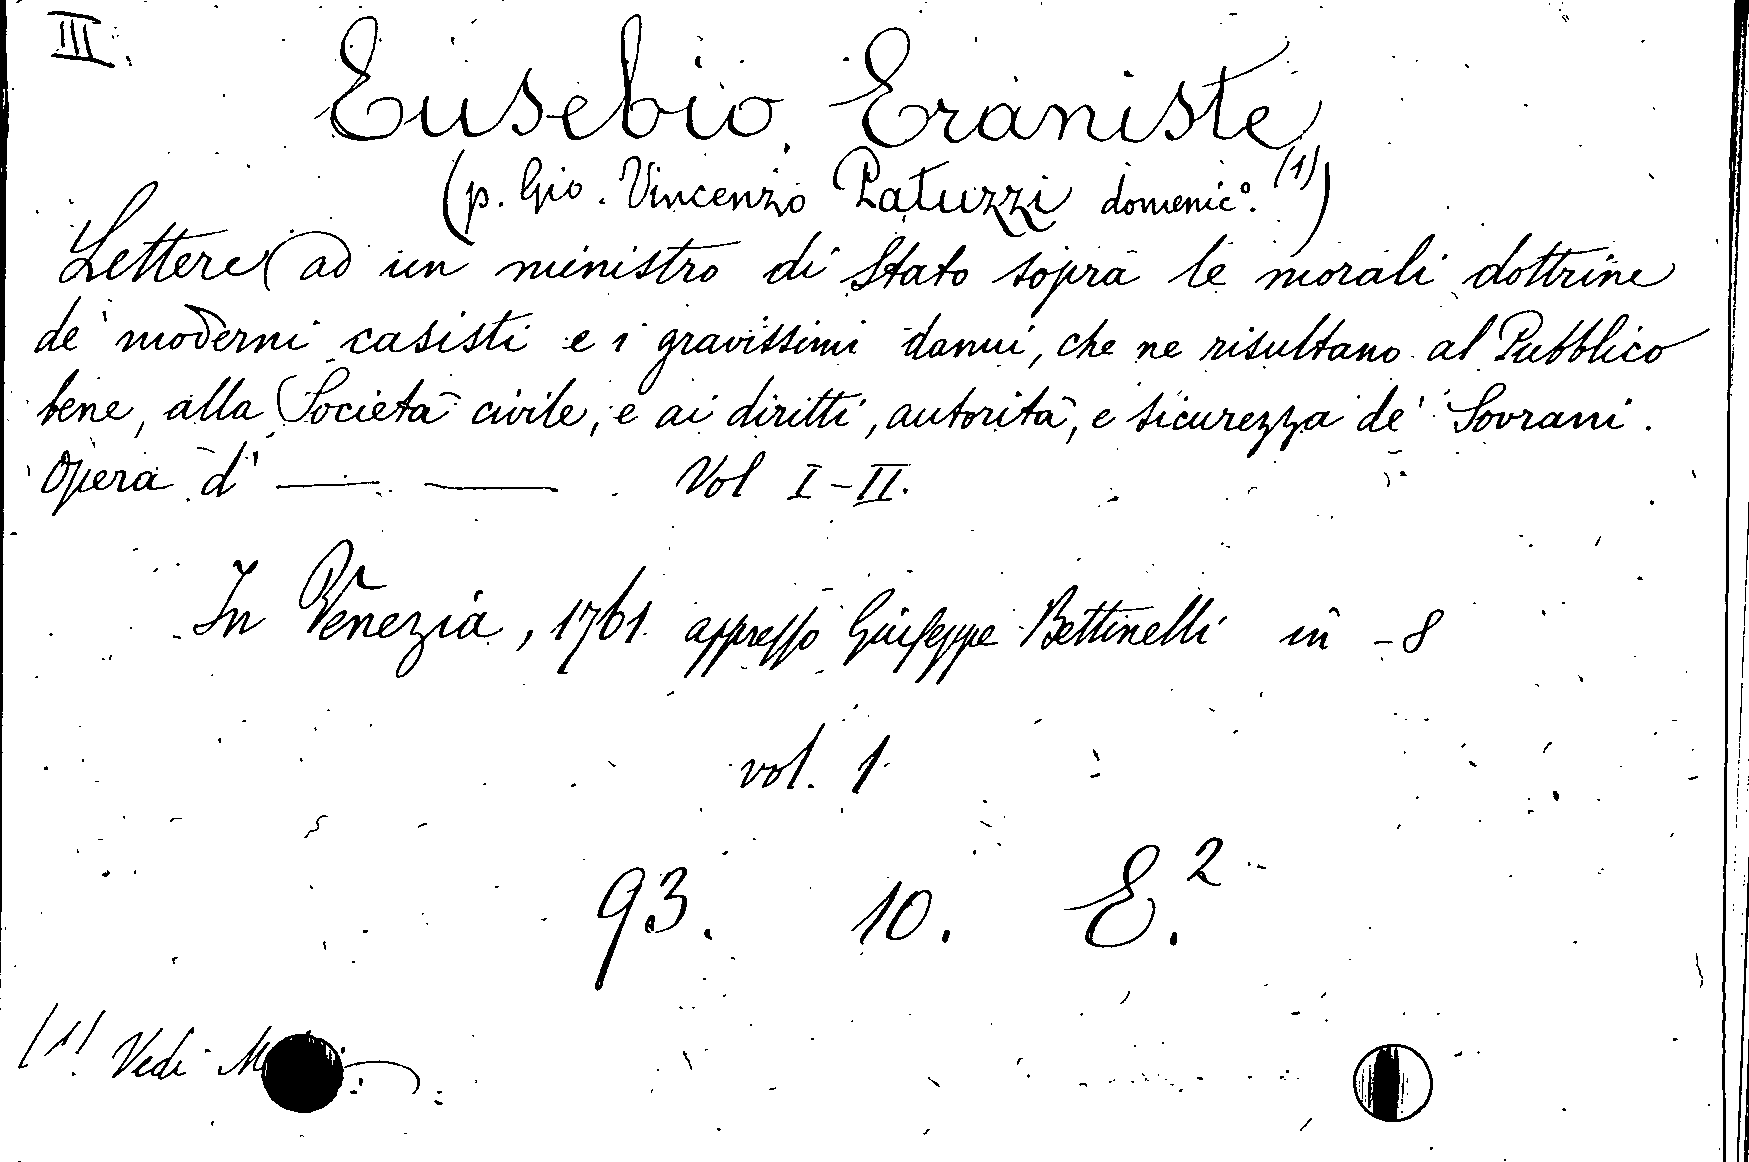 III.
Eusebio Eraniste
(p. Gio. Vincenzo Patuzzi domenic°. (1))
Lettere ad un ministro di Stato sopra le morali dottrine
de' moderni casisti e i gravissimi danni, che ne risultano al Pubblico
bene, alla Società civile, e ai diritti, autorità, e sicurezza de' Sovrani.
Opera d' — — Vol I-II.
In Venezia, 1761 appresso Giuseppe Bettinelli in -8
vol. 1
93. 10. E.²
(1) Vedi